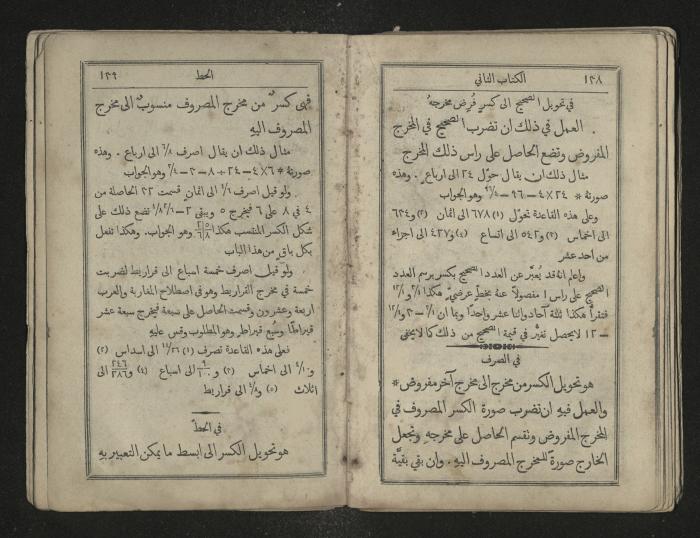 ١٢٨ الكتاب الثاني
في تحويل الصحيح الى كسرٍ فُرِض مخرجهُ
العمل في ذلك ان تضرب الصحيح في المخرج
المفروض وتضع الحاصل على راس ذلك المخرج
مثال ذلك ان يقال حوّل ٢٤ الى ارباع. وهذه
صورتهُ * ٢٤×٤=٩٦ وهو الجواب
وعلى هذه القاعدة تحوّل (١) ٦٧٨ الى اثمان (٢) و٦٢٤
الى اخماس (٣) و٥٤٢ الى اتساع (٤) و٤٢٧ الى اجزاء
من احد عشر
واعلم انهُ قد يُعبَّر عن العدد الصحيح بكسر برسم العدد
الصحيح على راس ١ مفصولاً عنهُ بخطٍ عرضيّ هكذا
فتقرأ هكذا ثلثة آحاد واثنا عشر واحدًا وبما ان
١٢ لا يحصل تغيُّر في قيمة الصحيح من ذلك كما لا يخفى
في الصرف
هو تحويل الكسر من مخرج الى مخرج آخر مفروض *
والعمل فيهِ ان تضرب صورة الكسر المصروف في
المخرج المفروض وتقسم الحاصل على مخرجهِ وتجعل
الخارج صورة للمخرج المصروف اليهِ. وان بقي بقيَّة
الحط ١٢٩
فهي كسرٌ من مخرج المصروف منسوبٌ الى مخرج
المصروف اليهِ
مثال ذلك ان يقال اصرف ٦/٨ الى ارباع. وهذه
صورتهُ * ٦×٤=٢٤÷٨=٣=٣/٤ وهو الجواب
ولو قيل اصرف ٤/٦ الى اثمان قسمت ٣٢ الحاصلة من
٤ في ٨ على ٦ فيخرج ٥ ويبقى ٢ نضع ذلك على
شكل الكسر المنتسب هكذا وهو الجواب. وهكذا تفعل
بكل باقٍ من هذا الباب
ولو قيل اصرف خمسة اسباع الى قراريط لضربت
خمسة في مخرج القراريط وهو في اصطلاح المغاربة والعرب
اربعة وعشرون وقسمت الحاصل على سبعة فيخرج سبعة عشر
قيراطًا وسُبع قيراط وهو المطلوب وقس عليهِ
فعلى هذه القاعدة تصرف (١) الى اسداس (٢)
الى اخماس (٣) و الى اسباع (٤) و ٢٤٦/٣٨٦ الى
اثلاث (٥) و الى قراريط
في الحطّ
هو تحويل الكسر الى ابسط ما يمكن التعبير بهِ